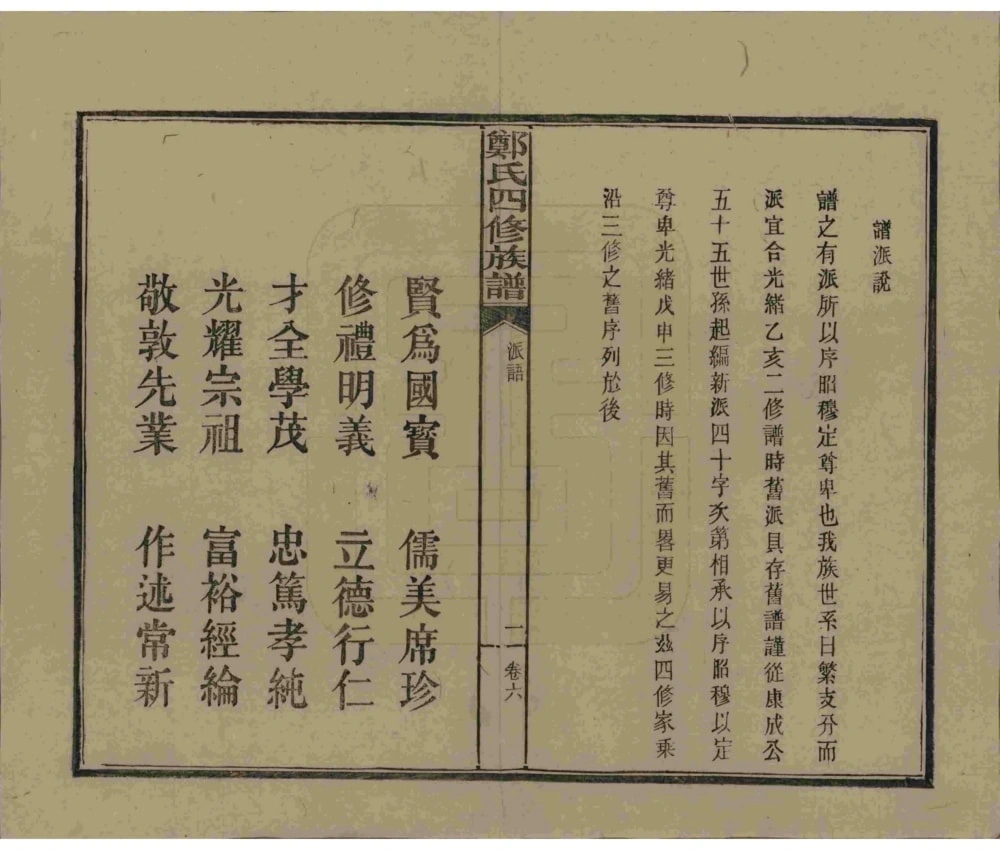 譜派說
譜之有派所以序昭穆定尊卑也我族世系日繁支分而
派宜合光緒乙亥二修譜時舊派具存舊譜謹從康成公
五十五世孫起編新派四十字次第相承以序昭穆以定
尊卑光緒戊申三修時因其舊而畧更易之玆四修家乘
沿三修之舊序列於後
鄭氏四修族譜
派語
二
卷六
賢爲國寶 儒美席珍
修禮明義 立德行仁
才全學茂 忠篤孝純
光耀宗祖 富裕經綸
敬敦先業 作述常新